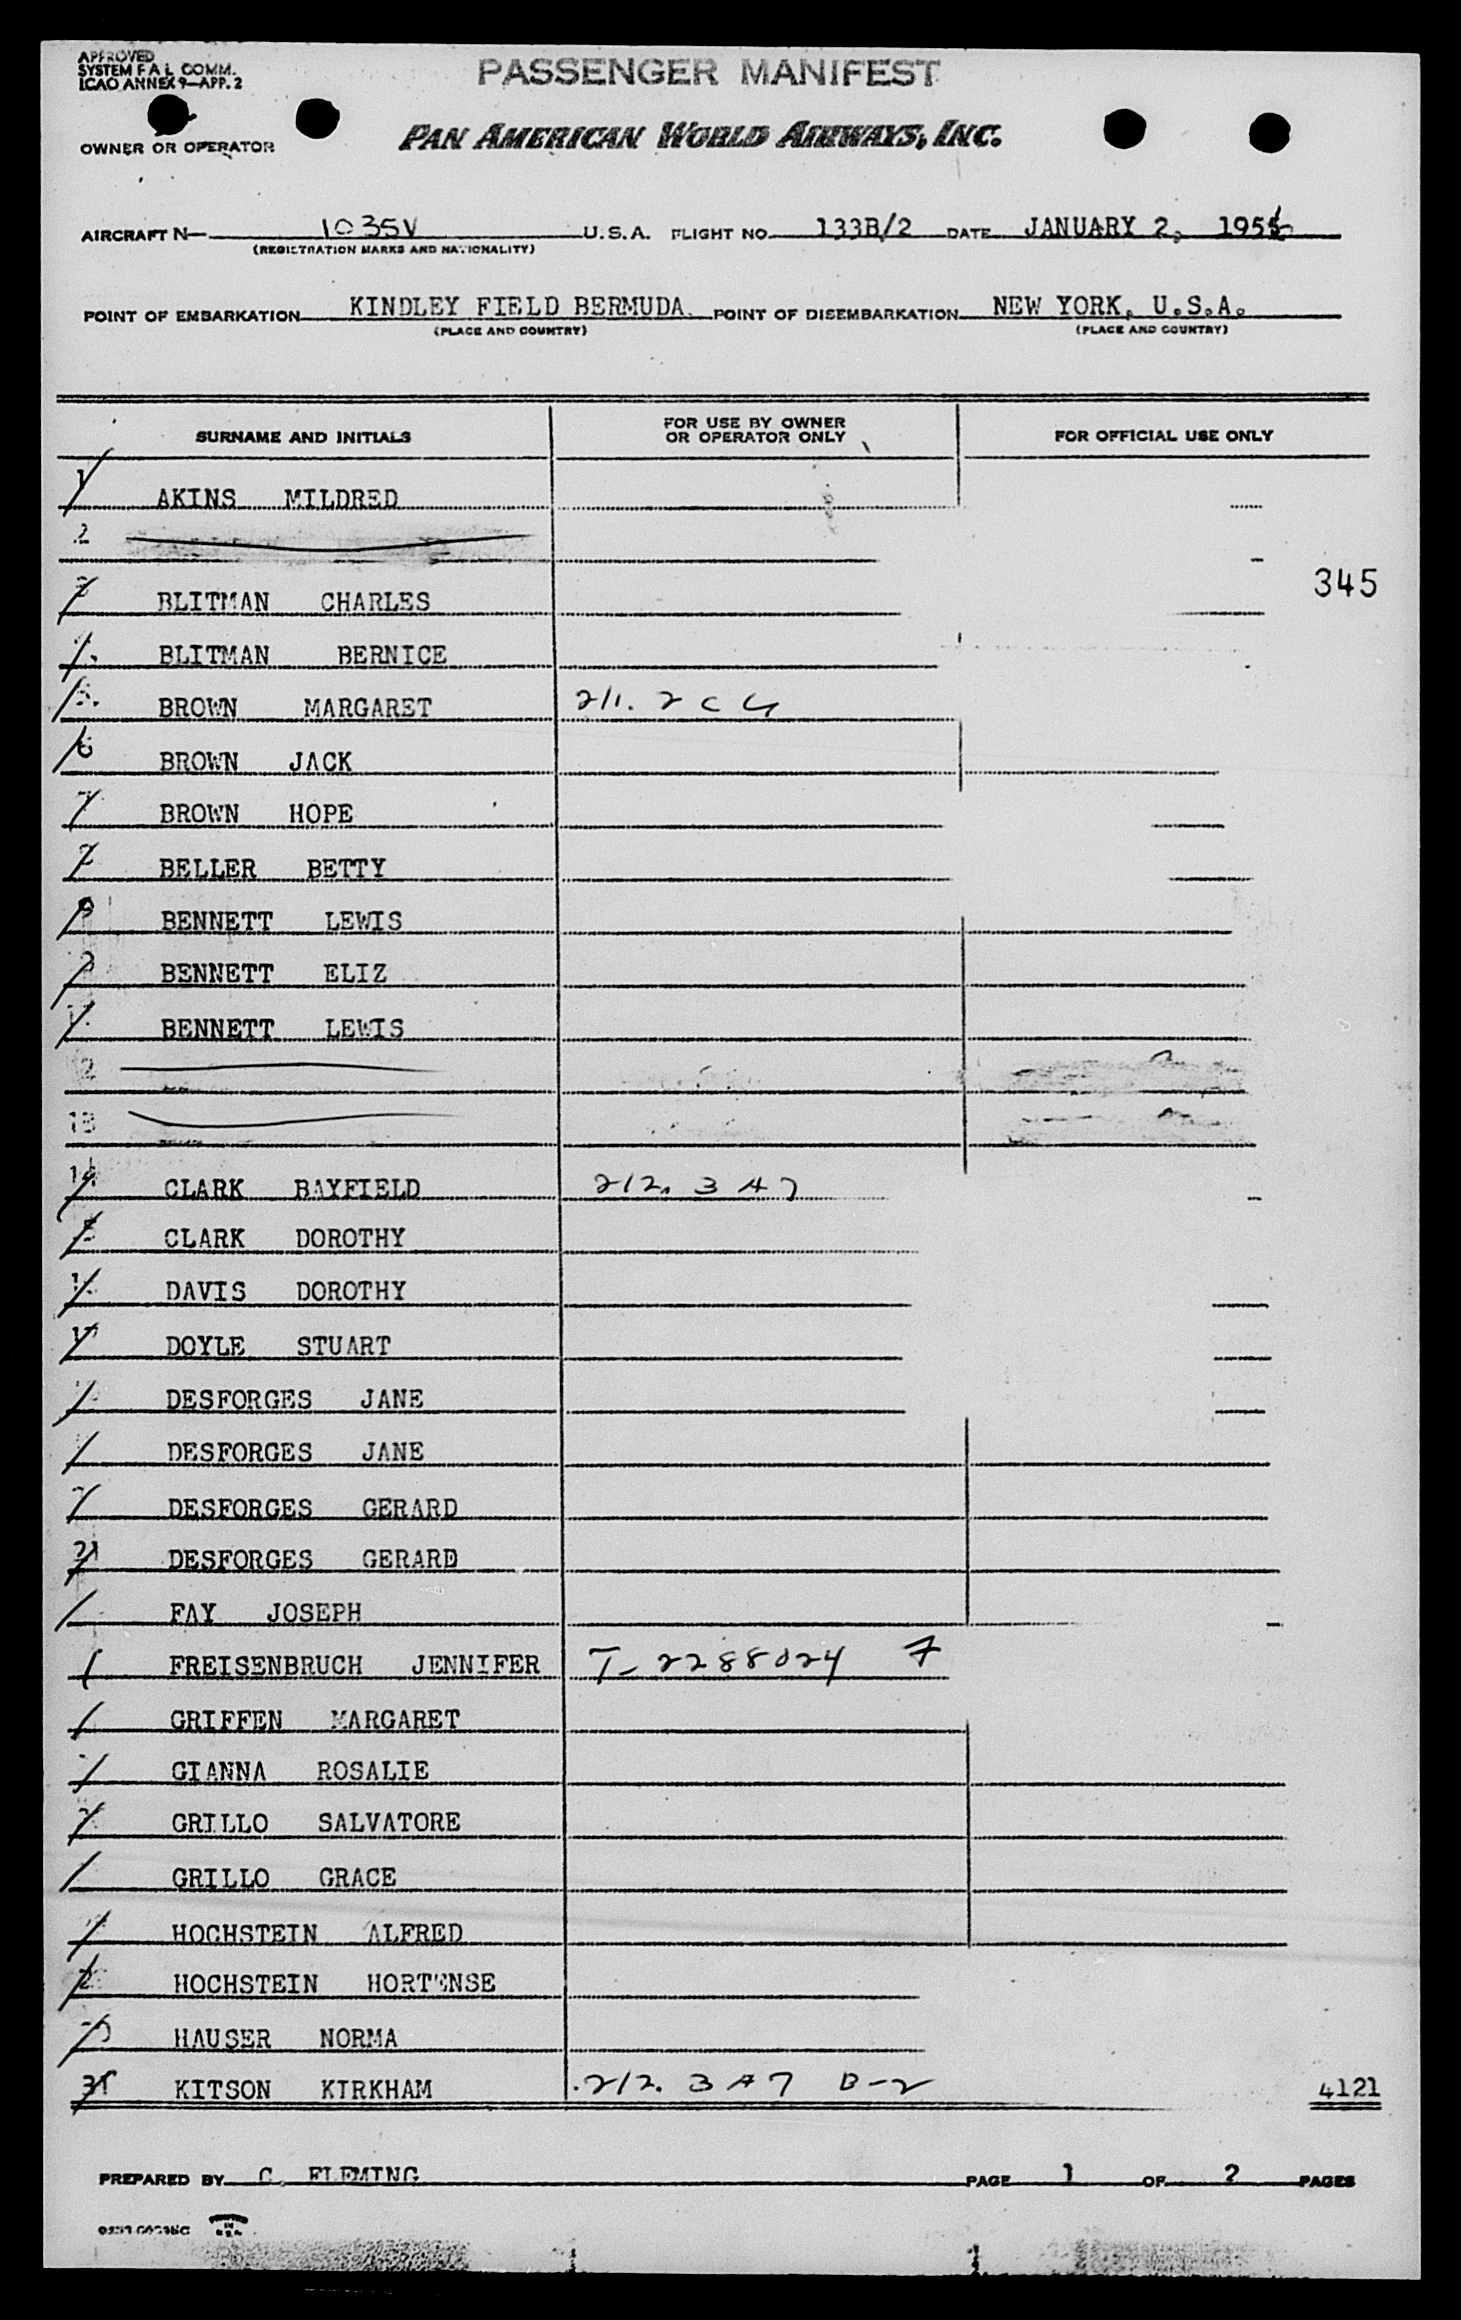 APPROVED
SYSTEM F A L COMM.
ICAO ANNEX 9—APP. 2
PASSENGER MANIFEST
OWNER OR OPERATOR
PAN AMERICAN WORLD AIRWAYS, INC.
AIRCRAFT N— 1035V U.S.A. FLIGHT NO. 133B/2 DATE JANUARY 2, 195
(REGISTRATION MARKS AND NATIONALITY)
POINT OF EMBARKATION KINDLEY FIELD BERMUDA. POINT OF DISEMBARKATION NEW YORK, U.S.A.
(PLACE AND COUNTRY) (PLACE AND COUNTRY)
SURNAME AND INITIALS FOR USE BY OWNER OR OPERATOR ONLY FOR OFFICIAL USE ONLY
1 AKINS MILDRED
2
345
3 BLITMAN CHARLES
BLITMAN BERNICE
5. BROWN MARGARET 211. 2 C G
6 BROWN JACK
7 BROWN HOPE
BELLER BETTY
9 BENNETT LEWIS
BENNETT ELIZ
BENNETT LEWIS
12
13
14 CLARK BAYFIELD 212. 3 A 7
CLARK DOROTHY
DAVIS DOROTHY
17 DOYLE STUART
DESFORGES JANE
DESFORGES JANE
DESFORGES GERARD
21 DESFORGES GERARD
FAY JOSEPH
FREISENBRUCH JENNIFER T-2288024 7
GRIFFEN MARGARET
GIANNA ROSALIE
GRILLO SALVATORE
GRILLO GRACE
HOCHSTEIN ALFRED
HOCHSTEIN HORTENSE
HAUSER NORMA
31 KITSON KIRKHAM 212. 3 A 7 B-2
4121
PREPARED BY C. FLEMING PAGE 1 OF 2 PAGES
PRINTED IN U.S.A.